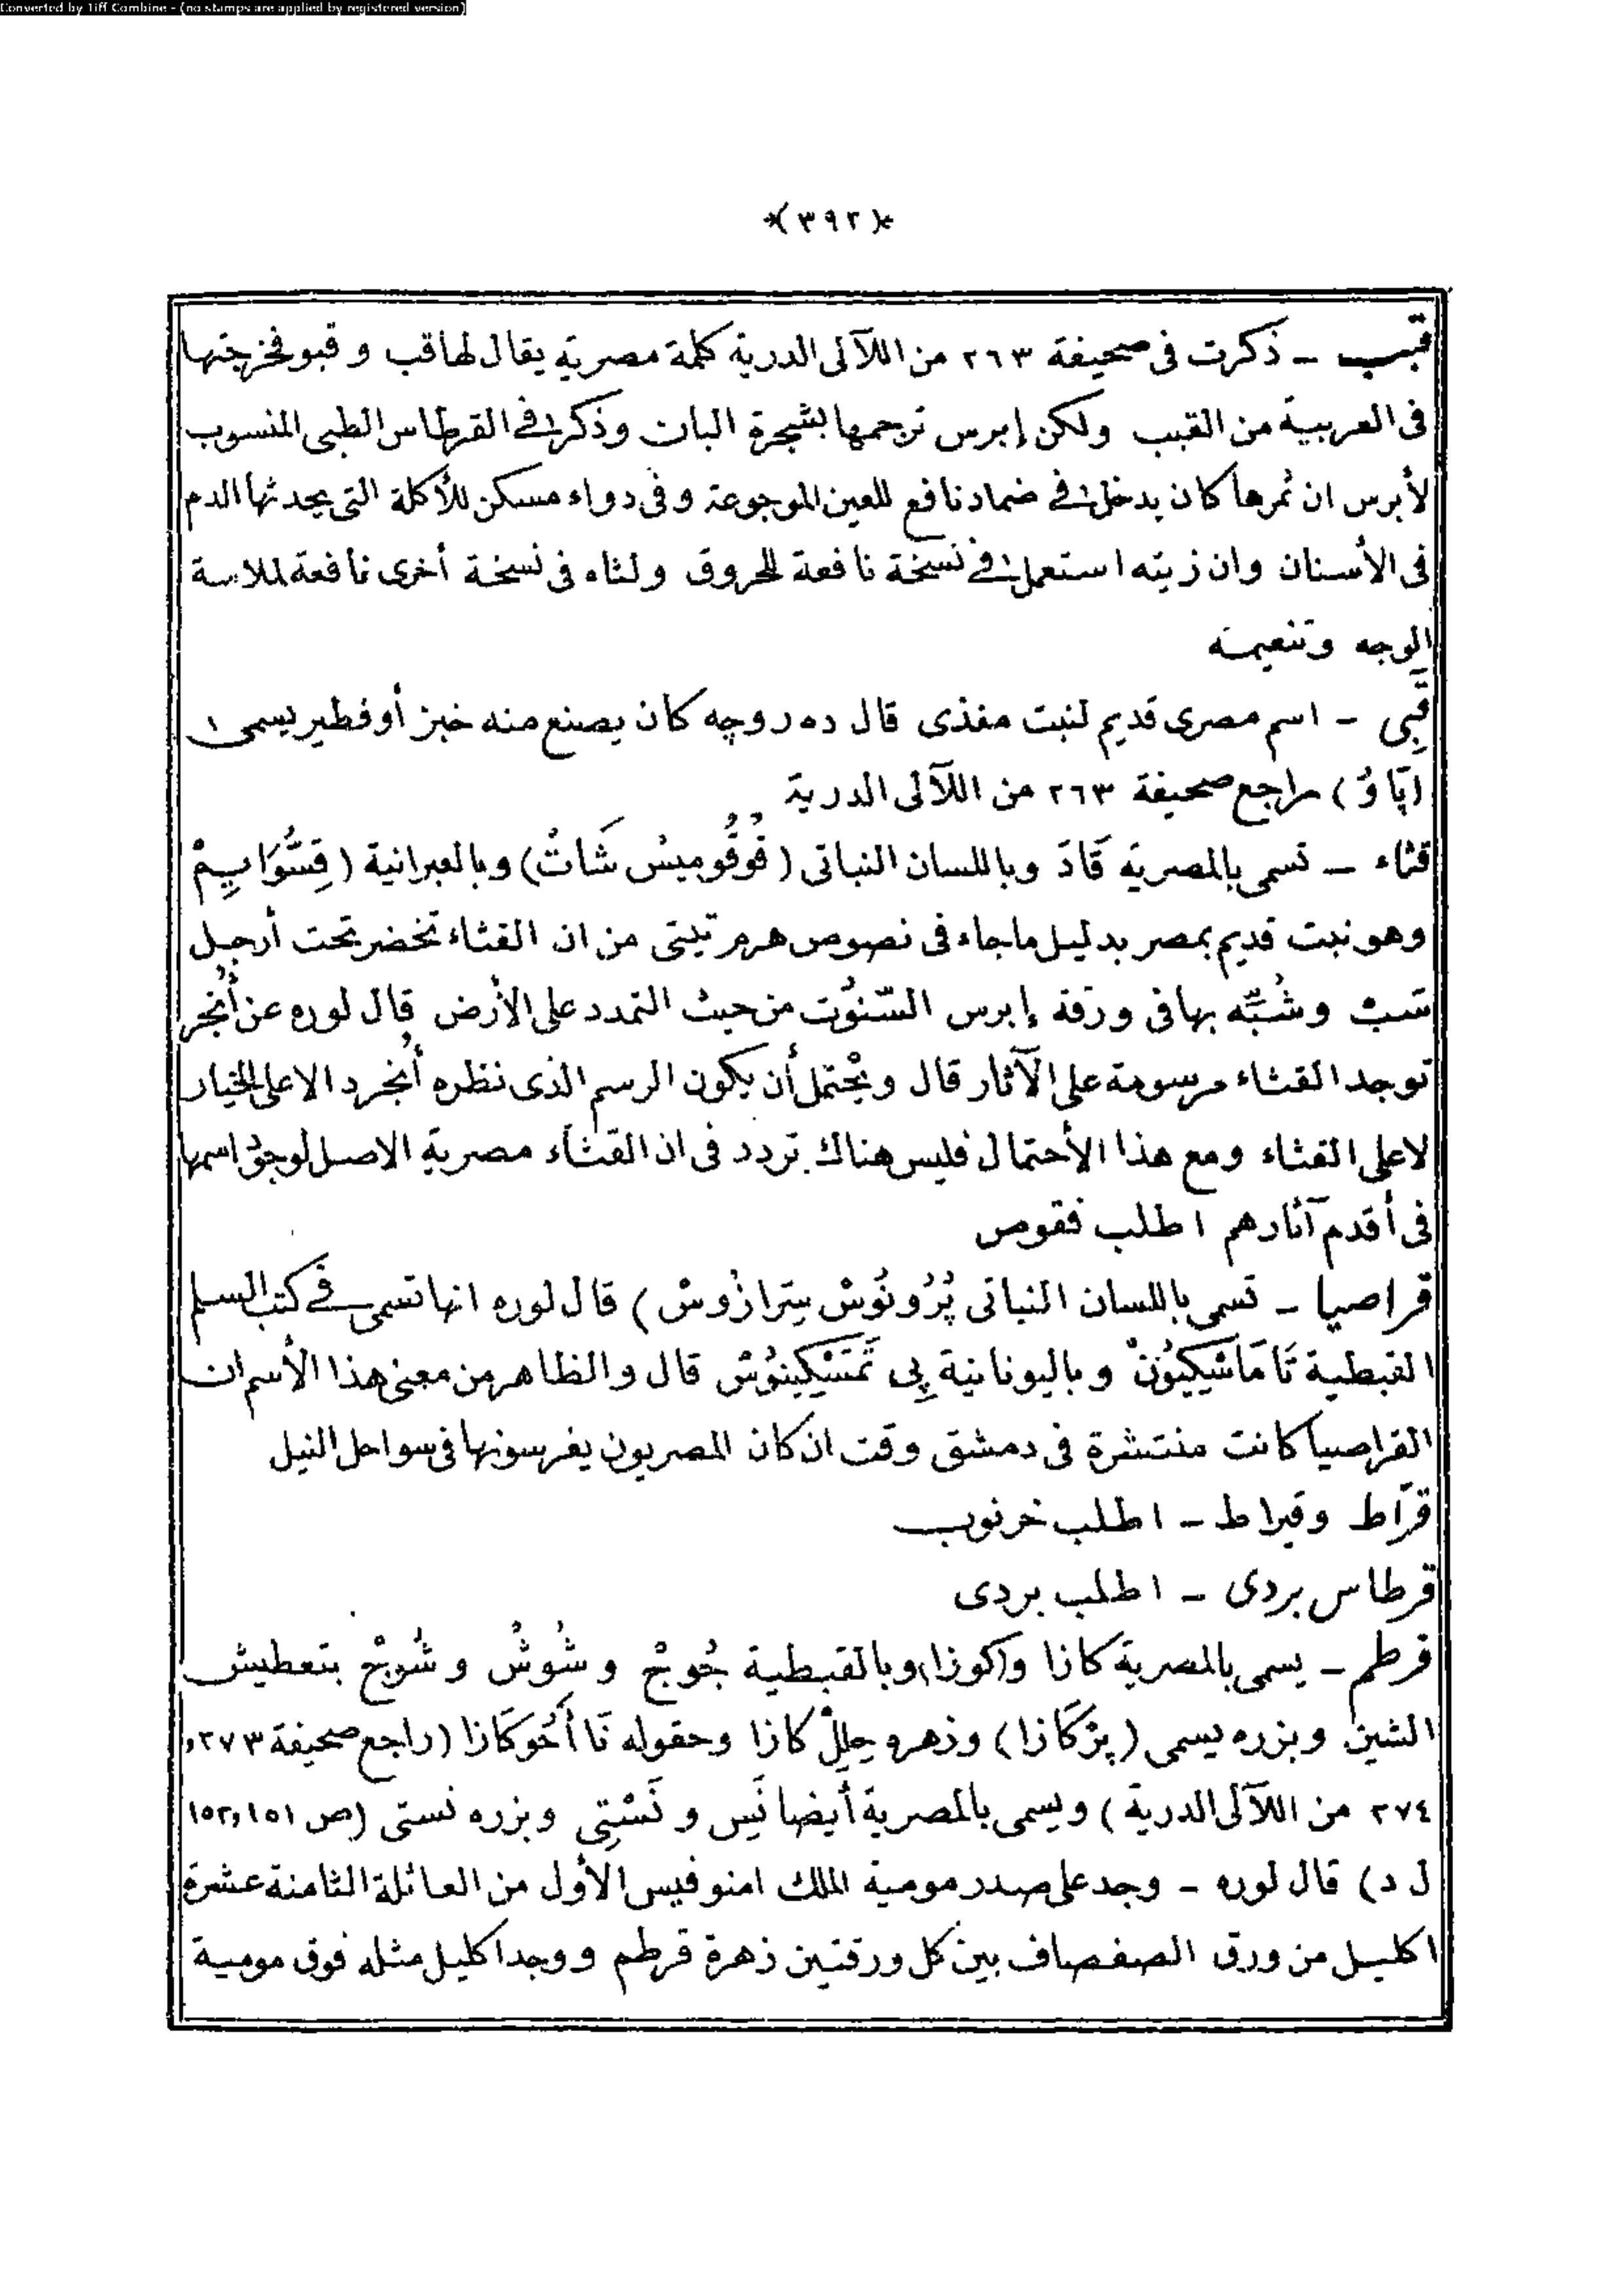 Converted by Tiff Combine - (no stamps are applied by registered version)
*(٣٩٢)*
قبب ـ ذكرت فى صحيفة ٢٦٣ من اللآلى الدرية كلمة مصرية يقال لها قب وقبو فخرجتها
فى العربية من القبب ولكن إبرس ترجمها بشجرة البان وذكر فى القرطاس الطبى المنسوب
لأبرس ان ثمرها كان يدخل فى ضماد نافع للعين الموجوعة وفى دواء مسكن للأكلة التى يحدثها الدم
فى الأسنان وان زيته استعمل فى نسخة نافعة للحروق ولثاه فى نسخة أخرى نافعة لملاسة
الوجه وتنعيمه
قَبِى ـ اسم مصرى قديم لنبت مغذى قال ده روچه كان يصنع منه خبز أو فطير يسمى
(پَاوُ) راجع صحيفة ٢٦٣ من اللآلى الدرية
قثاء ـ تسمى بالمصرية قَادَ وباللسان النباتى (قُوقُوميسْ شَاتْ) وبالعبرانية (قِسُّوَاييِمْ
وهو نبت قديم بمصر بدليل ما جاء فى نصوص هرم تيتى من ان القثاء تخضر تحت أرجل
سَبْ وشُبِّه بها فى ورقة إبرس السّنّوت من حيث التمدد على الأرض قال لوره عن أُنْجر
توجد القثاء مرسومة على الآثار قال ويحْتمل أن يكون الرسم الذى نظره أُنجرد الا على الخيار
لا على القثاء ومع هذا الأحتمال فليس هناك تردد فى ان القثاء مصرية الاصل لوجود اسمها
فى أقدم آثارهم اطلب فقوص
قراصيا ـ تسمى باللسان النباتى پُرُونُوسْ سِتَرازُوسْ) قال لوره انها تسمى فى كتب السلم
القبطية تَامَاسْكِيُنُونْ وباليونانية پِى تَمَسْكِينُوسْ قال والظاهر من معنى هذا الأسم ان
القراصيا كانت منتشرة فى دمشق وقت ان كان المصريون يغرسونها فى سواحل النيل
قرّاط وقيراط ـ اطلب خرنوب
قرطاس بردى ـ اطلب بردى
قرطم ـ يسمى بالمصرية كازا واكوزا وبالقبطية جُوجْ وشُوشْ وشُوجْ بتعطيش
الشين وبزره يسمى (پِرْكَازا) وزهره حِلِلْ كازا وحقوله تَا أَخُوكَازا (راجع صحيفة ٢٧٣,
٢٧٤ من اللآلى الدرية) ويسمى بالمصرية أيضا نَسِ ونَسْتِى وبزره نستى (ص ١٥١,١٥٢
ل د) قال لوره ـ وجد على صدر مومية الملك امنوفيس الأول من العائلة الثامنة عشرة
اكليل من ورق الصفصاف بين كل ورقتين زهرة قرطم ووجد اكليل مثله فوق مومية